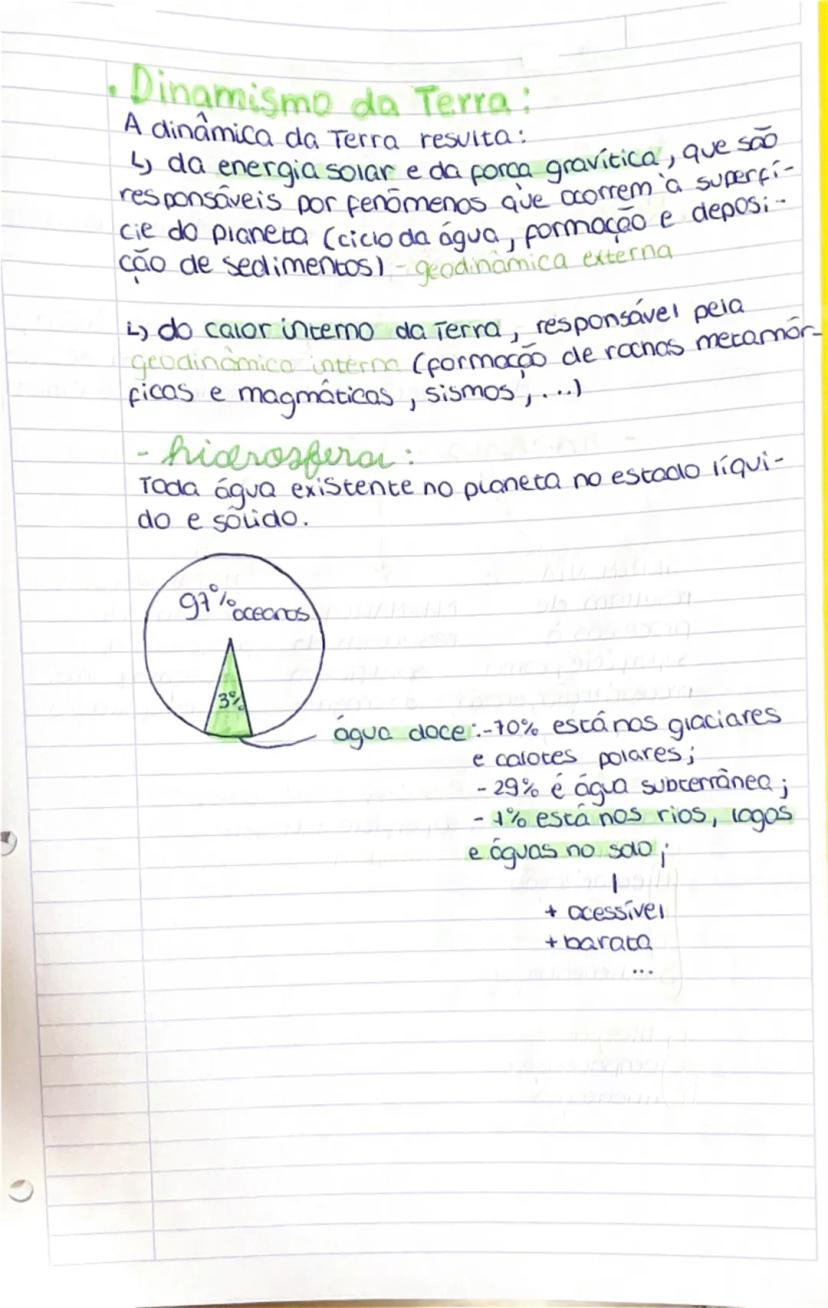 • Dinamismo da Terra:
A dinâmica da Terra resulta:
↳ da energia solar e da força gravítica, que são
responsáveis por fenómenos que ocorrem à superfí-
cie do planeta (ciclo da água, formação e deposi-
ção de sedimentos) - geodinâmica externa
↳ do calor interno da Terra, responsável pela
geodinâmica interna (formação de rochas metamór-
ficas e magmáticas, sismos, ...)
- hidrosfera:
Toda água existente no planeta no estado líqui-
do e sólido.
97% oceanos
3%
água doce: - 70% está nos glaciares
e calotes polares;
- 29% é água subterrânea;
- 1% está nos rios, lagos
e águas no solo;
+ acessível
+ barata
...